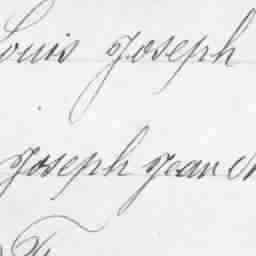 Louis Joseph
Joseph Jean